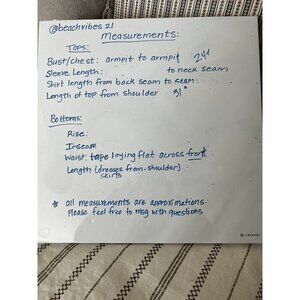 @beachvibes21
Measurements:
Tops:
Bust/chest: armpit to armpit 24"
Sleeve Length: to neck seam
Shirt length from back seam to seam:
Length of top from shoulder 31"
Bottoms:
Rise:
Inseam
Waist: tape laying flat across front
Length (dresses from shoulder)
skirts
* all measurements are approximations.
Please feel free to msg with questions